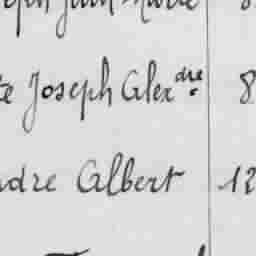 Joseph Jean Marie 8
te Joseph Alexdre 8
ndre Albert 12